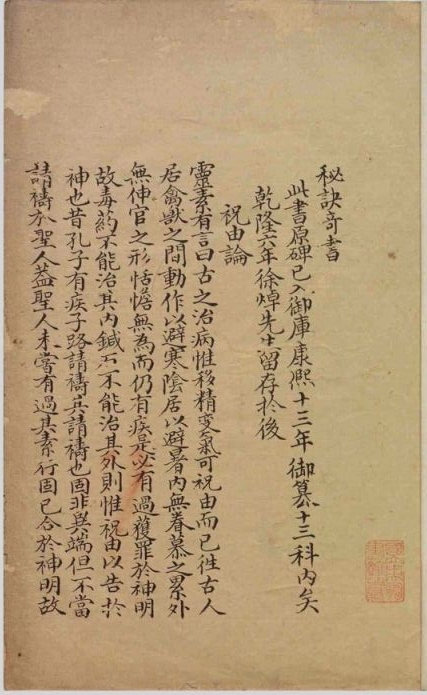 秘訣奇書
此書原碑已入御庫康熙十三年御纂十三科內矣
乾隆六年徐焯先生留存於後
祝由論
靈素有言曰古之治病惟移精变氣可祝由而已徃古人
居禽獸之間動作以避寒陰居以避暑內無眷慕之累外
無伸官之形恬憺無為而仍有疾是必有過獲罪於神明
故毒药不能治其內鍼石不能治其外則惟祝由以告於
神也昔孔子有疾子路請禱其請禱也固非異端但不當
請禱於聖人葢聖人未嘗有過其素行固已合於神明故